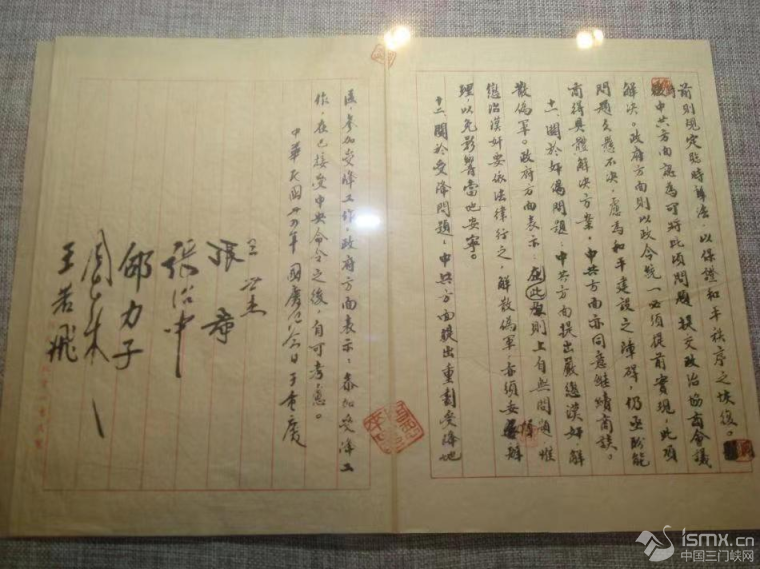 前則規定臨時辦法，以保證和平秩序之恢復。
中共方面認為可將此項問題提交政治協商會議
解決。政府方面則以政令統一必須提前實現，此項
問題久懸不決，慮為和平建設之障礙，仍亟盼能
商得具體解決方案。中共方面亦同意繼續商談。
十一、關於奸偽問題：中共方面提出嚴懲漢奸，解
散偽軍。政府方面表示：在此原則上自無問題，惟
懲治漢奸要依法律行之，解散偽軍亦須妥慎辦
理，以免影響當地安寧。
十二、關於受降問題：中共方面提出重劃受降地
區，參加受降工作，政府方面表示：參加受降工
作，在已接受中央命令之後，自可考慮。
中華民國卅四年國慶紀念日於重慶
王世杰
張羣
張治中
邵力子
周恩來
王若飛
ismx.cn
中国三门峡网